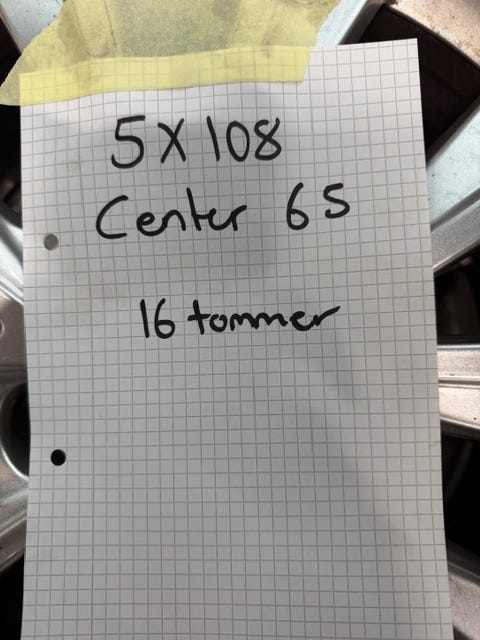 5X108
Center 65
16 tommer